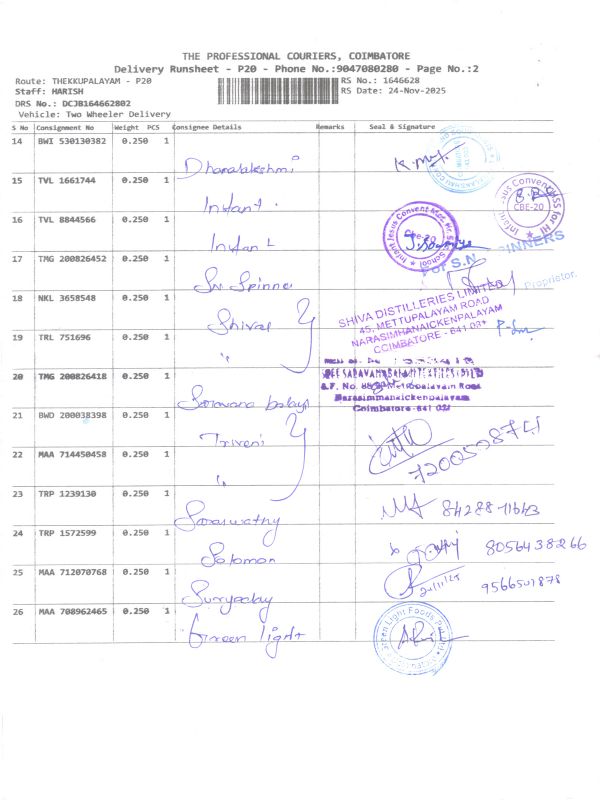 THE PROFESSIONAL COURIERS, COIMBATORE
Delivery Runsheet - P20 - Phone No.:9047080280 - Page No.:2
Route: THEKKUPALAYAM - P20
RS No.: 1646628
Staff: HARISH
RS Date: 24-Nov-2025
DRS No.: DCJB164662802
Vehicle: Two Wheeler Delivery
S No Consignment No Weight PCS Consignee Details Remarks Seal & Signature
14 BWI 530130382 0.250 1
Dhanalakshmi
15 TVL 1661744 0.250 1
Infant
Infant Jesus Convent
CBE-20
16 TVL 8844566 0.250 1
Infant
Infant Jesus Convent
School
CBE-20
17 TMG 200826452 0.250 1
Sri Spinne
For S.N. SPINNERS
Proprietor.
18 NKL 3658548 0.250 1
Shiva
SHIVA DISTILLERIES LIMITED
45, METTUPALAYAM ROAD
NARASIMHANAICKENPALAYAM
COIMBATORE - 641 031
19 TRL 751696 0.250 1
"
20 TMG 200826418 0.250 1
Saravana balaji
Narasimmanaickenpalayam
Coimbatore-641 031
21 BWD 200038398 0.250 1
Triveni
22 MAA 714450458 0.250 1
"
23 TRP 1239130 0.250 1
Saraswathy
24 TRP 1572599 0.250 1
Solomon
8056438266
25 MAA 712070768 0.250 1
Suryaday
24/11/25
9566501878
26 MAA 708962465 0.250 1
Green light
Green Light Foods Pvt Ltd